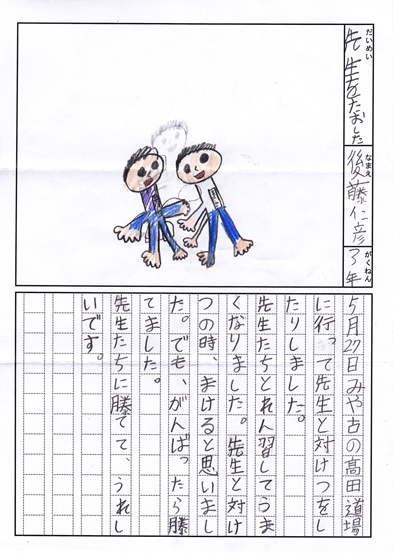 だいめい
先生をたおした
なまえ
後藤仁彦
がくねん
3年
5月27日みや古の髙田道場
に行って先生と対けつをし
たりしました。
先生たちとれん習してうま
くなりました。先生と対け
つの時、まけると思いまし
た。でも、がんばったら勝
てました。
先生たちに勝てて、うれし
いです。